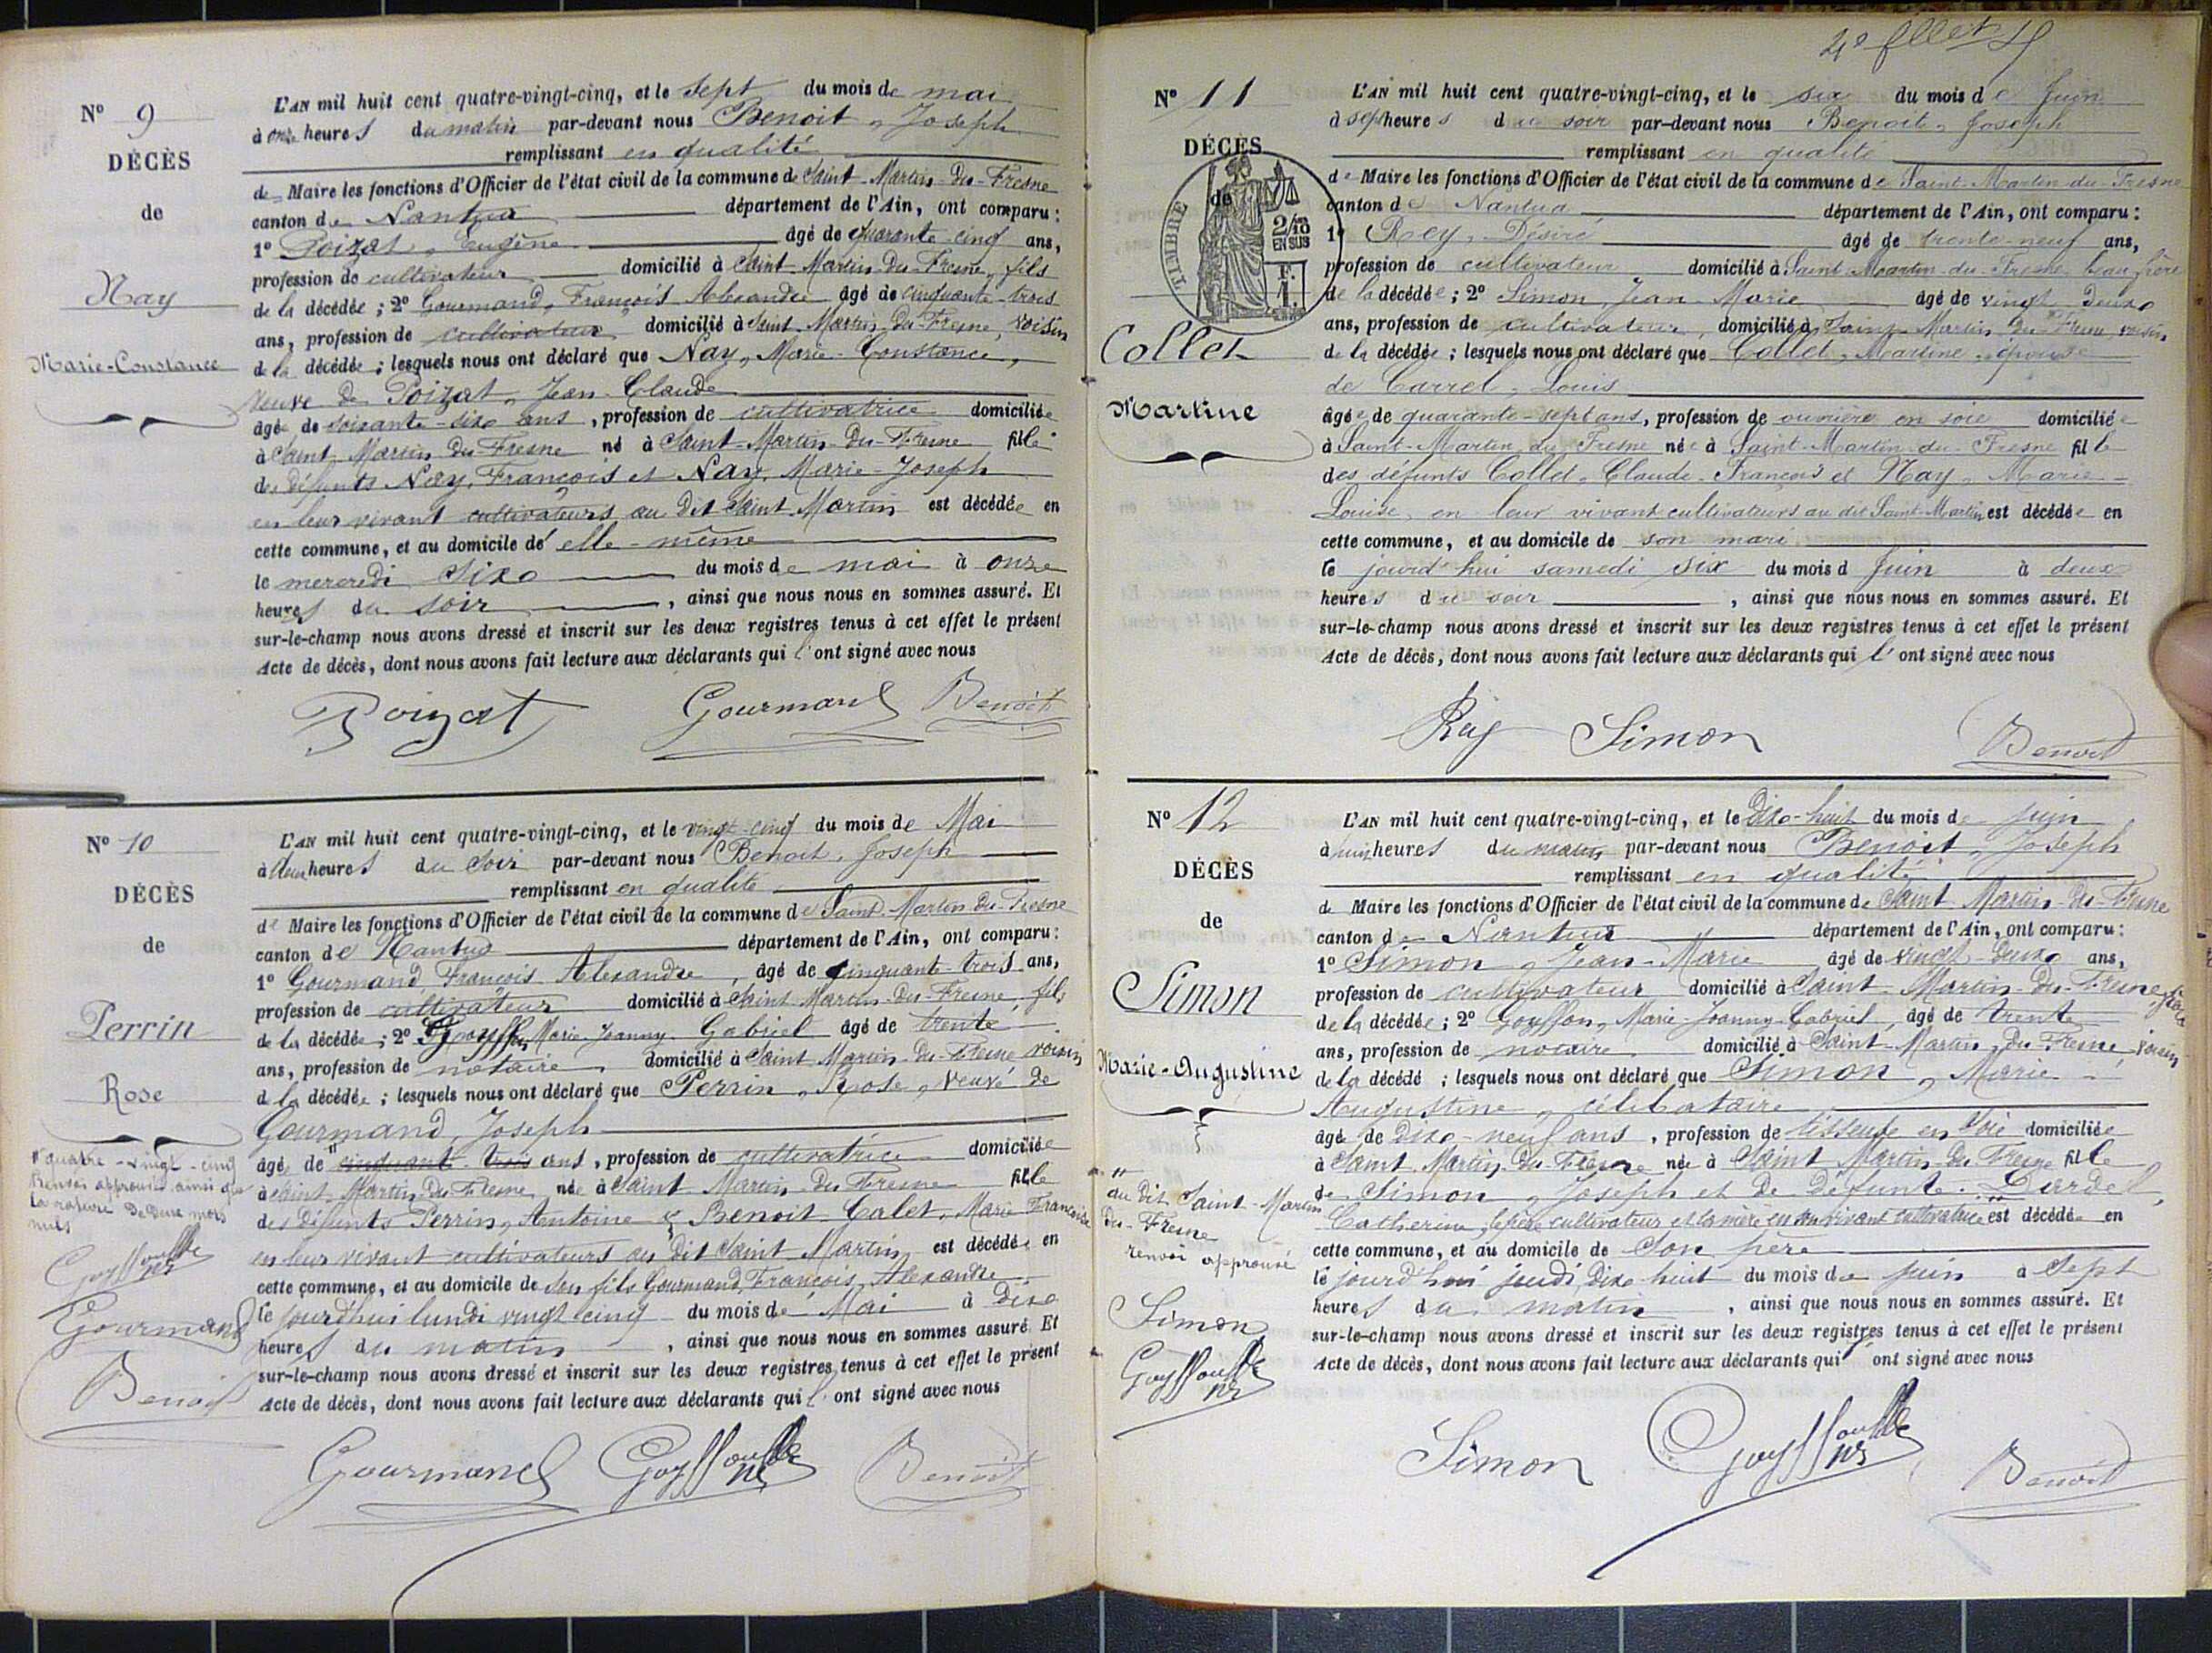 N° 9
DÉCÈS
de
Nay
Marie-Constance
L'AN mil huit cent quatre-vingt-cinq, et le sept du mois de mai
à onze heures du matin par-devant nous Benoit, Joseph
remplissant en qualité
de Maire les fonctions d'Officier de l'état civil de la commune de Saint-Martin-du-Fresne
canton de Nantua département de l'Ain, ont comparu :
1° Poizat, Eugène âgé de quarante-cinq ans,
profession de cultivateur domicilié à Saint-Martin-du-Fresne, fils
de la décédée ; 2° Gourmand, François Alexandre âgé de cinquante-trois
ans, profession de cultivateur domicilié à Saint-Martin-du-Fresne, voisin
de la décédée ; lesquels nous ont déclaré que Nay, Marie-Constance,
veuve de Poizat, Jean-Claude
âgée de soixante-six ans, profession de cultivatrice domiciliée
à Saint-Martin-du-Fresne né à Saint-Martin-du-Fresne fille
des défunts Nay, François et Nay, Marie-Joseph
en leur vivant cultivateurs au dit Saint Martin est décédée en
cette commune, et au domicile de elle-même
le mercredi six du mois de mai à onze
heures du soir, ainsi que nous nous en sommes assuré. Et
sur-le-champ nous avons dressé et inscrit sur les deux registres tenus à cet effet le présent
Acte de décès, dont nous avons fait lecture aux déclarants qui l'ont signé avec nous
Poizat Gourmand Benoit
N° 10
DÉCÈS
de
Perrin
Rose
" quatre-vingt-cinq
Renvoi approuvé ainsi que
la rature de deux mots
nuls
Gourmand
Benoit
L'AN mil huit cent quatre-vingt-cinq, et le vingt-cinq du mois de Mai
à deux heures du soir par-devant nous Benoit, Joseph
remplissant en qualité
de Maire les fonctions d'Officier de l'état civil de la commune de Saint-Martin-du-Fresne
canton de Nantua département de l'Ain, ont comparu :
1° Gourmand, François Alexandre, âgé de cinquante-trois ans,
profession de cultivateur domicilié à Saint-Martin-du-Fresne, fils
de la décédée ; 2° Marie-Joanny-Gabriel âgé de trente
ans, profession de notaire, domicilié à Saint-Martin-du-Fresne voisin
de la décédée ; lesquels nous ont déclaré que Perrin, Rose, veuve de
Gourmand, Joseph
âgée de " cinquante-trois ans, profession de cultivatrice domiciliée
à Saint-Martin-du-Fresne, née à Saint-Martin-du-Fresne fille
des défunts Perrin, Antoine & Benoit-Calet, Marie-Françoise
en leur vivant cultivateurs au dit Saint Martin est décédée en
cette commune, et au domicile de son fils Gourmand, François, Alexandre
le jourd'hui lundi vingt-cinq du mois de Mai à dix
heures du matin, ainsi que nous nous en sommes assuré. Et
sur-le-champ nous avons dressé et inscrit sur les deux registres tenus à cet effet le présent
Acte de décès, dont nous avons fait lecture aux déclarants qui l'ont signé avec nous
Gourmand Benoit
4e fllet
N° 11
DÉCÈS
de
TIMBRE
2/10
EN SUS
F.
1.
Collet
Martine
L'AN mil huit cent quatre-vingt-cinq, et le six du mois de Juin
à sept heures du soir par-devant nous Benoit, Joseph
remplissant en qualité
de Maire les fonctions d'Officier de l'état civil de la commune de Saint-Martin-du-Fresne
canton de Nantua département de l'Ain, ont comparu :
1° Rey, Désiré âgé de trente-neuf ans,
profession de cultivateur domicilié à Saint-Martin-du-Fresne, beau frère
de la décédée ; 2° Simon, Jean-Marie âgé de vingt-deux
ans, profession de cultivateur, domicilié à Saint-Martin-du-Fresne, voisin
de la décédée ; lesquels nous ont déclaré que Collet, Martine, épouse
de Carrel, Louis
âgée de quarante-sept ans, profession de ouvrière en soie domiciliée
à Saint-Martin-du-Fresne née à Saint-Martin-du-Fresne fille
des défunts Collet, Claude-François et Nay, Marie-
Louise, en leur vivant cultivateurs au dit Saint-Martin est décédée en
cette commune, et au domicile de son mari
le jourd'hui samedi six du mois d Juin à deux
heures du soir, ainsi que nous nous en sommes assuré. Et
sur-le-champ nous avons dressé et inscrit sur les deux registres tenus à cet effet le présent
Acte de décès, dont nous avons fait lecture aux déclarants qui l'ont signé avec nous
Rey Simon Benoit
N° 12
DÉCÈS
de
Simon
Marie-Augustine
"
du dit Saint-Martin
du-Fresne
renvoi approuvé
Simon
L'AN mil huit cent quatre-vingt-cinq, et le dix-huit du mois de juin
à heures du matin par-devant nous Benoit, Joseph
remplissant en qualité
de Maire les fonctions d'Officier de l'état civil de la commune de Saint-Martin-du-Fresne
canton de Nantua département de l'Ain, ont comparu :
1° Simon, Jean-Marie âgé de vingt-deux ans,
profession de cultivateur domicilié à Saint-Martin-du-Fresne, frère
de la décédée ; 2° Gouffon, Marie-Joanny-Gabriel, âgé de trente
ans, profession de notaire domicilié à Saint-Martin-du-Fresne, voisin
de la décédé ; lesquels nous ont déclaré que Simon, Marie-
Augustine, célibataire
âgé de dix-neuf ans, profession de tisseuse en soie domiciliée
à Saint-Martin-du-Fresne née à Saint-Martin-du-Fresne fille
de Simon, Joseph et de défunte Dardel,
Catherine, le père cultivateur et la mère en son vivant cultivatrice " est décédée en
cette commune, et au domicile de son père
le jourd'hui jeudi, dix huit du mois de juin à sept
heures du matin, ainsi que nous nous en sommes assuré. Et
sur-le-champ nous avons dressé et inscrit sur les deux registres tenus à cet effet le présent
Acte de décès, dont nous avons fait lecture aux déclarants qui l'ont signé avec nous
Simon Benoit